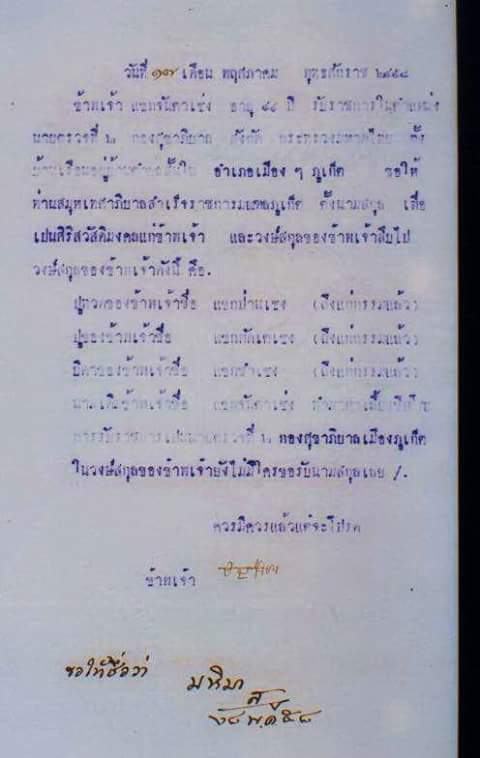 วันที่ ๑๗ เดือน พฤสภาคม พุทธศักราช ๒๔๕๘
ข้าพเจ้า แขกจันดาเซ่ง อายุ ๔๔ ปี รับราชการในตำแหน่ง
นายตรวจที่ ๒ กองสุขาภิบาล สังกัด กระทรวงมหาดไทย ตั้ง
บ้านเรือนอยู่บ้าน อำเภอเมือง ๆ ภูเก็ต ขอให้
ท่านสมุหเทศาภิบาลสำเร็จราชการมณฑลภูเก็ต ตั้งนามสกุล เพื่อ
เปนศิริสวัสดิมงคลแก่ข้าพเจ้า และวงษ์สกุลของข้าพเจ้าสืบไป
วงษ์สกุลของข้าพเจ้าดังนี้ คือ.
ปู่ทวดของข้าพเจ้าชื่อ (ถึงแก่กรรมแล้ว)
ปู่ของข้าพเจ้าชื่อ (ถึงแก่กรรมแล้ว)
บิดาของข้าพเจ้าชื่อ (ถึงแก่กรรมแล้ว)
นามเดิมข้าพเจ้าชื่อ แขกจันดาเซ่ง ทำมาหาเลี้ยงชีพโดย
การรับราชการเปนนายตรวจที่ ๒ กองสุขาภิบาลเมืองภูเก็ต
ในวงษ์สกุลของข้าพเจ้ายังไม่มีใครขอรับนามสกุลเลย /.
ควรมิควรแล้วแต่จะโปรด
ข้าพเจ้า
ขอให้ชื่อว่า มหิมา
๒๘ พ.ค. ๕๘